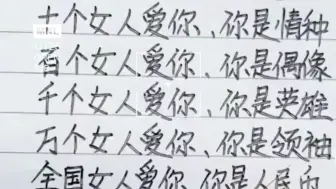 十个女人爱你、你是情种
百个女人爱你、你是偶像
千个女人爱你、你是英雄
万个女人爱你、你是领袖
全国女人爱你 你是人民币